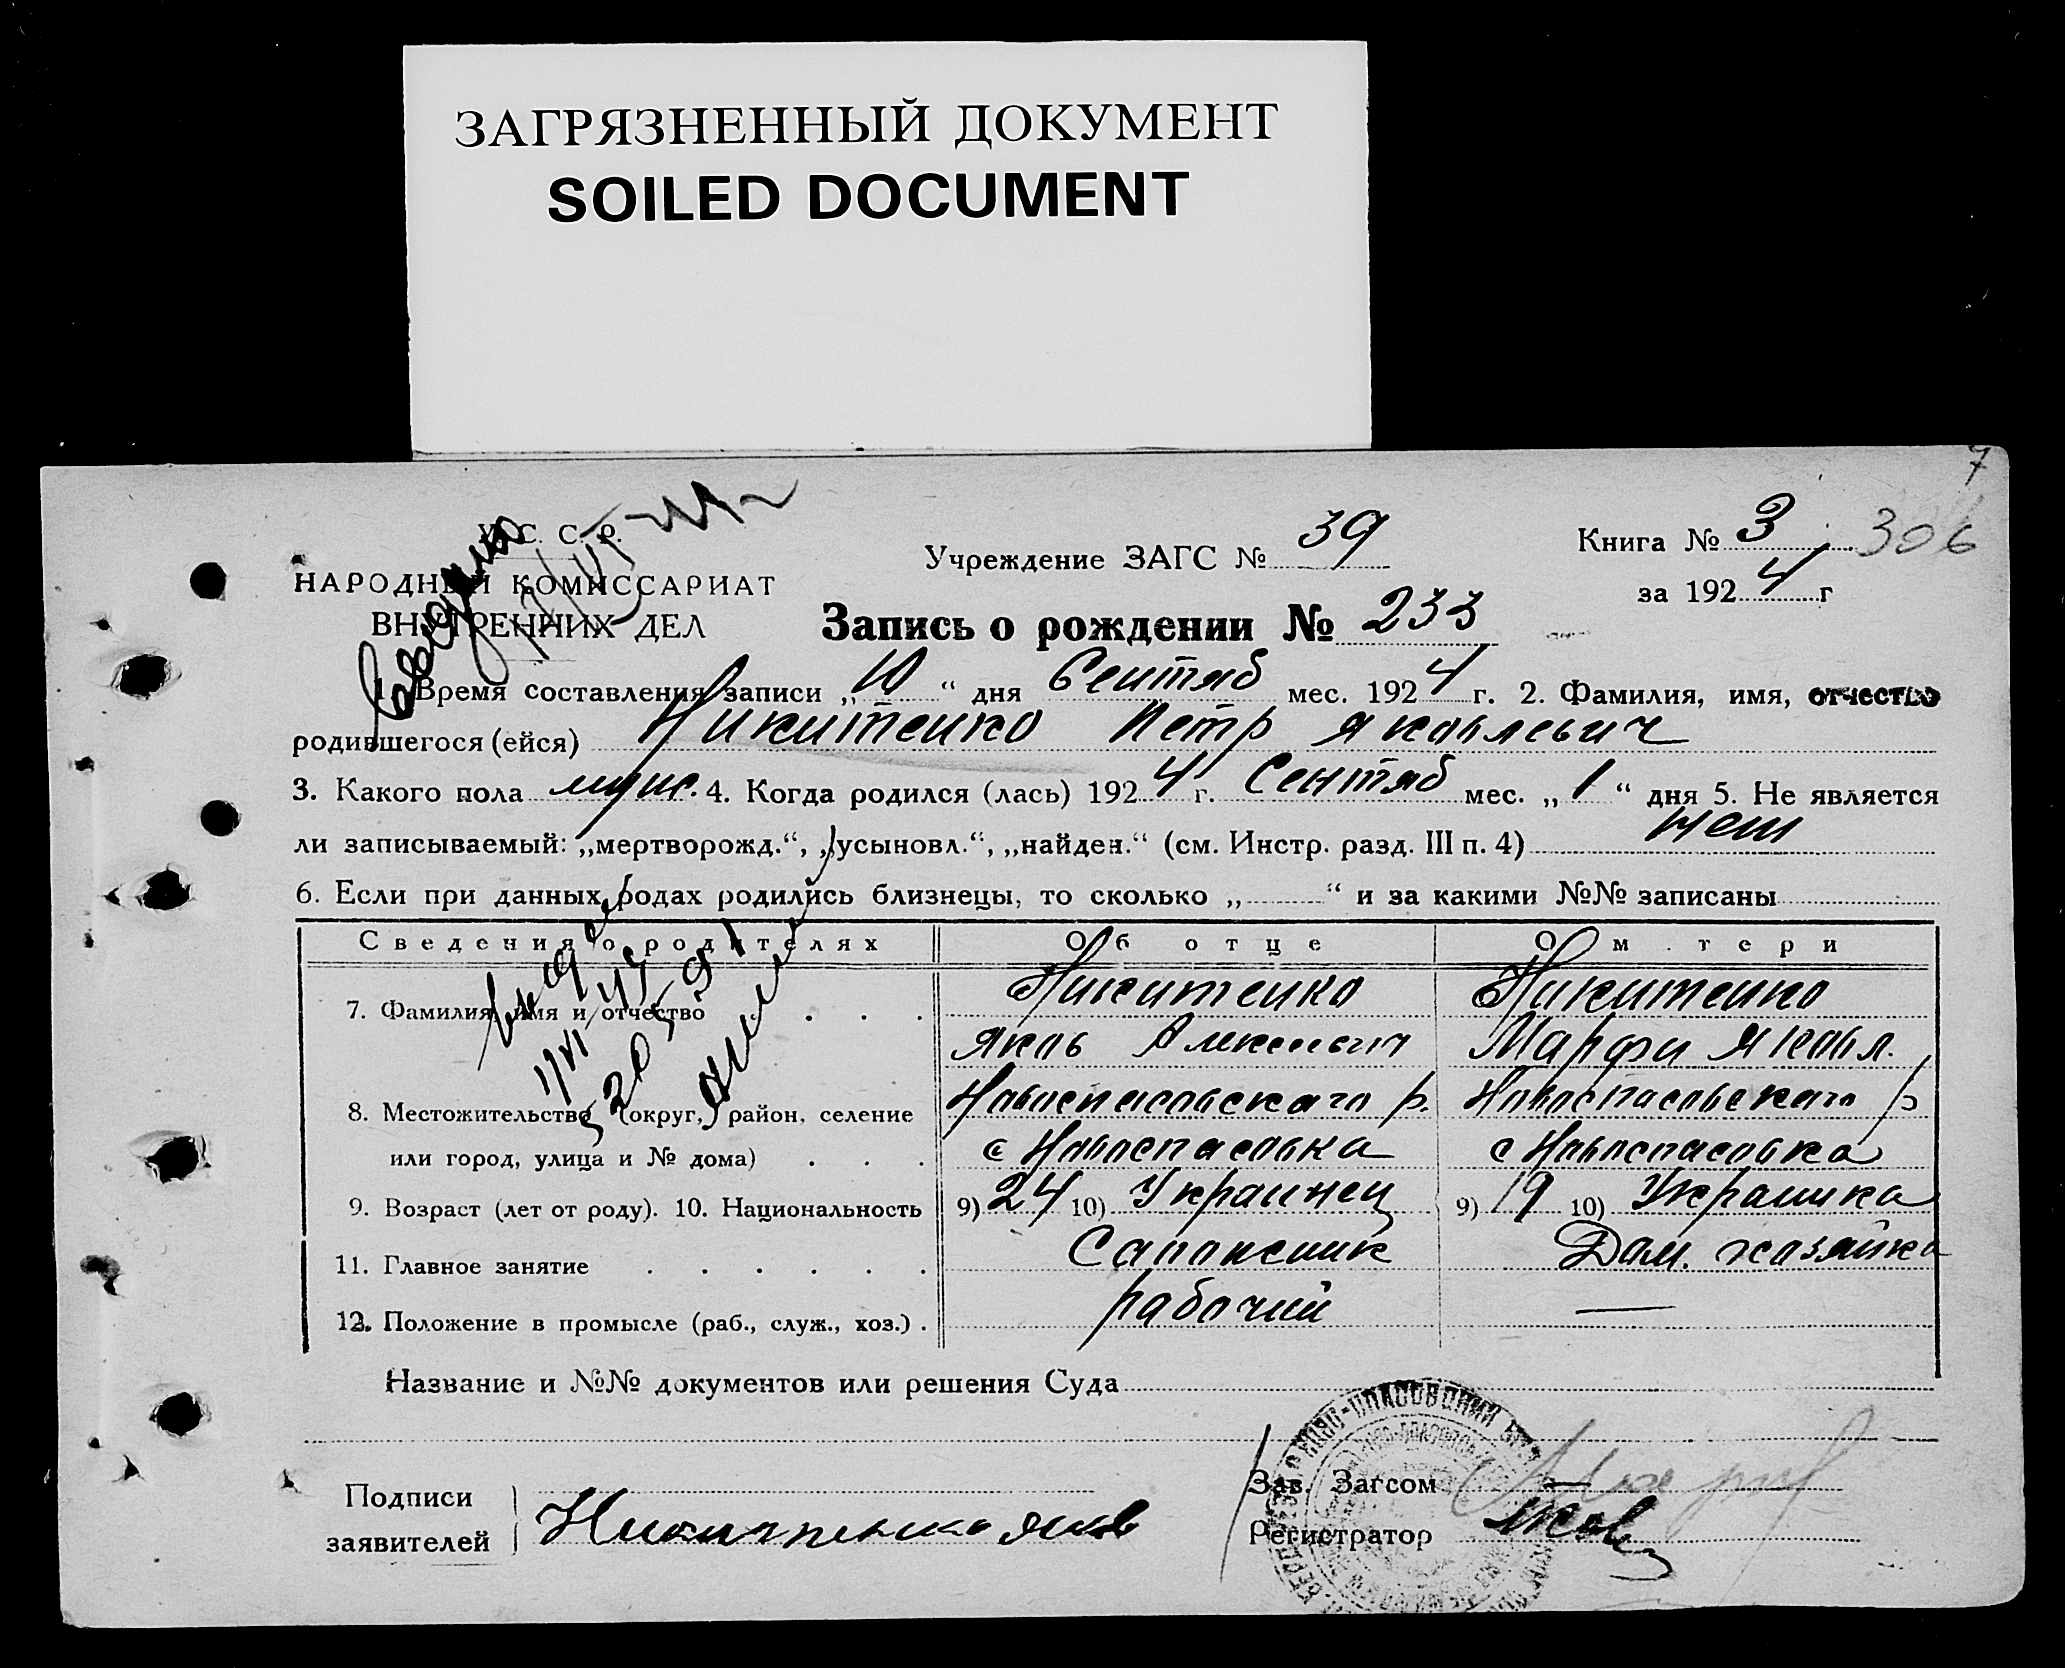 ЗАГРЯЗНЕННЫЙ ДОКУМЕНТ
SOILED DOCUMENT
7
У. С. С. Р.
НАРОДНЫЙ КОМИССАРИАТ
ВНУТРЕННИХ ДЕЛ
Учреждение ЗАГС № 39
Книга № 3 306
за 1924 г
Запись о рождении № 233
1. Время составления записи „10“ дня Сентяб мес. 1924 г. 2. Фамилия, имя, отчество
родившегося (ейся) Никитенко Петр Яковлевич
3. Какого пола муж. 4. Когда родился (лась) 1924 г. Сентяб мес. „1“ дня 5. Не является
ли записываемый: „мертворожд.“, „усыновл.“, „найден.“ (см. Инстр. разд. III п. 4) нет
6. Если при данных родах родились близнецы, то сколько „ “ и за какими №№ записаны
Сведения о родителях Об отце О м тери
7. Фамилия, имя и отчество Никитенко Никитенко
Яков Алексеевич Марфи Яковл.
8. Местожительство (округ, район, селение Новоспасовского р. Новоспасовского р
или город, улица и № дома) с Новоспасовка с Новоспасовка
9. Возраст (лет от роду). 10. Национальность 9) 24 10) Украинец 9) 19 10) Украинка
11. Главное занятие Сапожник Дом. хозяйка
12. Положение в промысле (раб., служ., хоз.) рабочий —
Название и №№ документов или решения Суда
Подписи
заявителей Никитенко Яков
Зав. Загсом
Регистратор